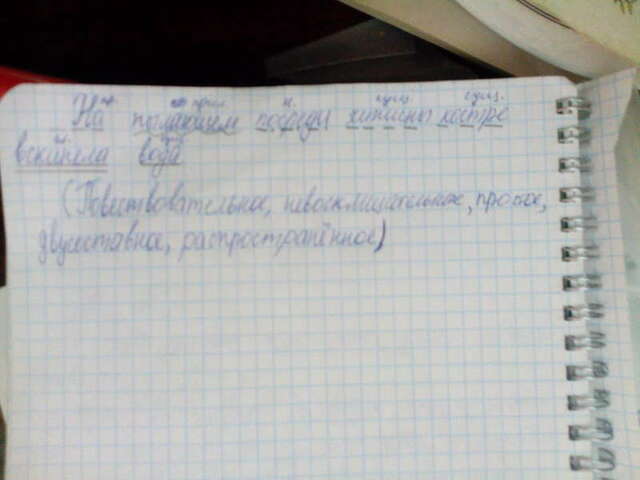 сущ. сущ.
На пылающем посреди хижины костре
вскипела вода
(Повествовательное, невосклицательное, простое,
двусоставное, распространённое)